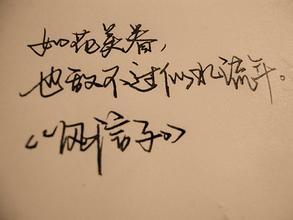 如花美眷，
也敌不过似水流年。
《风信子》